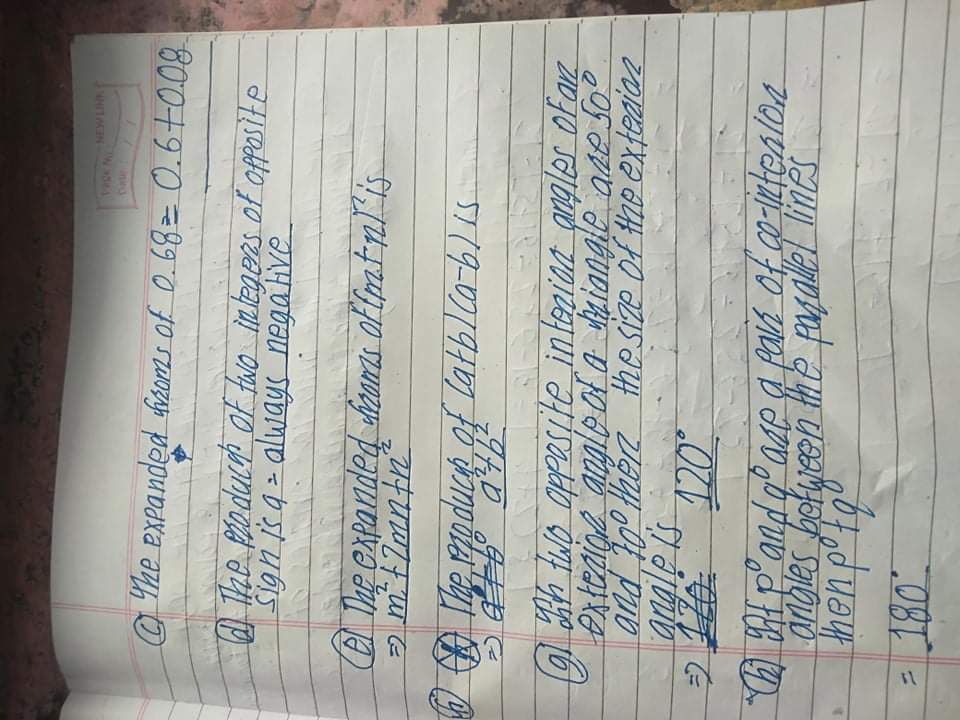 PAGE NO.
NEW LINK
Date: / /
(c) The expanded froms of 0.68 = 0.6 + 0.08
(d) The product of two integers of opposite
sign is a = always negative
(e) The expanded froms of (m+n)² is
=> m² + 2mn + n²
(h) The product of (a+b)(a-b) is
=> a² + b²
(g) If two opposite interior angles of an
exterior angle of a triangle are 50°
and 70° then the size of the exterior
angle is
=> 120°
(h) If p° and q° are a pair of co-interior
angles between the parallel lines
then p° + q°
= 180°